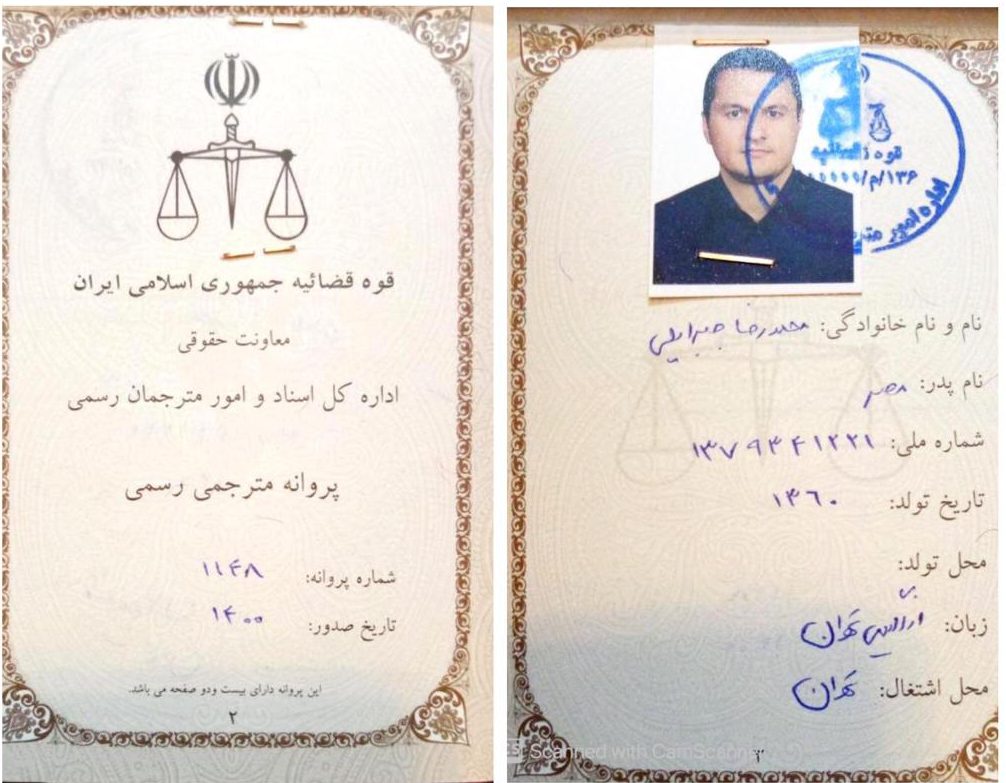 قوه قضائیه جمهوری اسلامی ایران
معاونت حقوقی
اداره کل اسناد و امور مترجمان رسمی
پروانه مترجمی رسمی
شماره پروانه: ۱۱۴۸
تاریخ صدور: ۱۴۰۰
این پروانه دارای بیست ودو صفحه می باشد.
۲
قوه قضائیه
۱۳۶/م/۱۰۰۰۰
اداره امور
نام و نام خانوادگی: محمدرضا جبرایلی
نام پدر:
شماره ملی: ۱۳۷۹۴۴۱۲۲۱
تاریخ تولد: ۱۳۶۰
محل تولد:
زبان: تهران
محل اشتغال: تهران
۳
CS Scanned with CamScanner